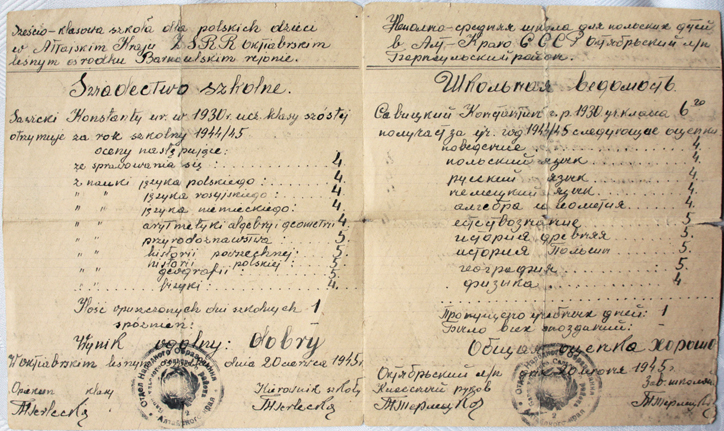 Sześcio-klasowa szkoła dla polskich dzieci
w Ałtajskim Kraju ZSRR Oktiabrskim
leśnym ośrodku Barnaulskim rejonie.
Świadectwo szkolne.
Sawicki Konstanty ur. w 1930 r. ucz. klasy szóstej
otrzymuje za rok szkolny 1944/45
oceny następujące:
ze sprawowania się: 4.
z nauki języka polskiego: 4.
" " języka rosyjskiego: 4.
" " języka niemieckiego: 4.
" " arytmetyki algebry i geometrii 4.
" " przyrodoznawstwa: 5.
" " historii powszechnej: 5.
" " historii polskiej: 5.
" " geografii: 5.
" " fizyki: 4.
Ilość opuszczonych dni szkolnych 1
spóźnień:
Wynik ogólny: dobry
W Oktiabrskim leśnym dnia 20 czerwca 1945 r.
Opiekun klasy Kierownik szkoły
Неполно-средняя школа для польских детей
в Алт.-Краю СССР Октябрьский л/п
районе.
Школьная ведомость.
Савицкий Константин г.р. 1930 уч. класса 6го
получает за уч. год 1944/45 следующие оценки
поведение 4.
польский язык 4.
русский язык 4.
немецкий язык 4.
алгебра и геометия 4.
естествознание 5.
история древняя 5.
история Польши 5.
география 5.
физика 4.
Пропущено учебных дней: 1
Было всех опозданий:
Общая оценка хорошо
Октябрьский л/п 20 июня 1945 г.
Классный руков. Зав. школы